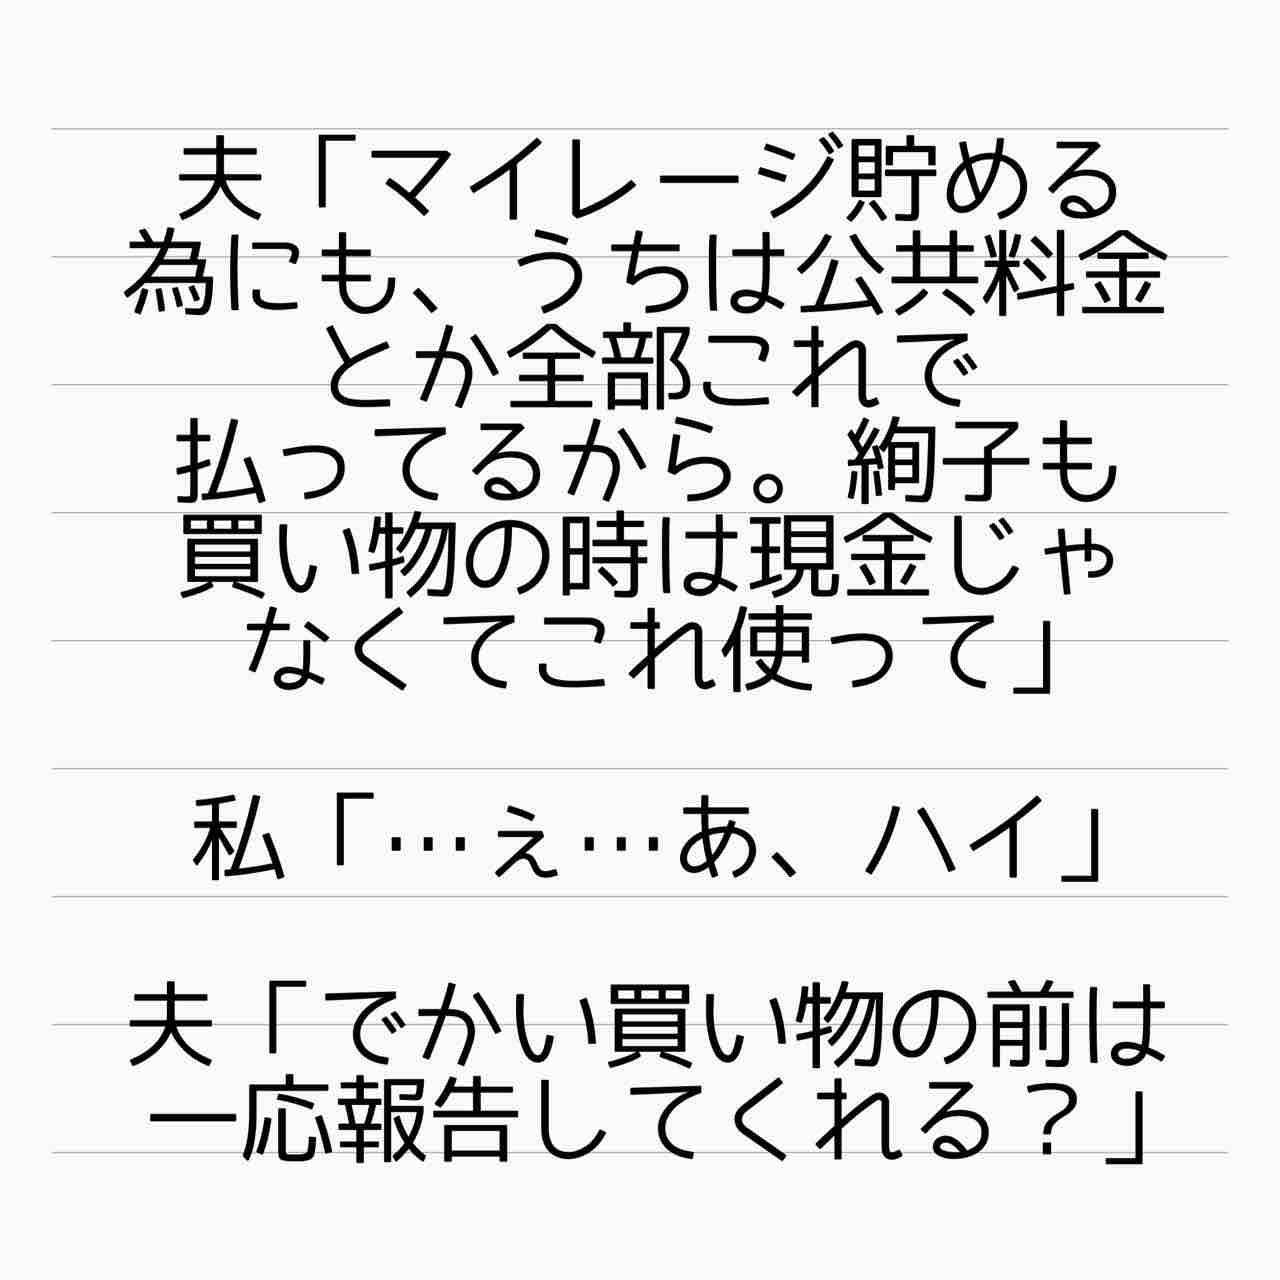 夫「マイレージ貯める
為にも、うちは公共料金
とか全部これで
払ってるから。絢子も
買い物の時は現金じゃ
なくてこれ使って」
私「…ぇ…あ、ハイ」
夫「でかい買い物の前は
一応報告してくれる？」